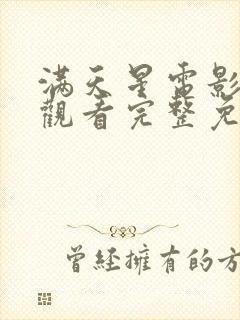 滿天星電影
觀看完整免
曾經擁有的方